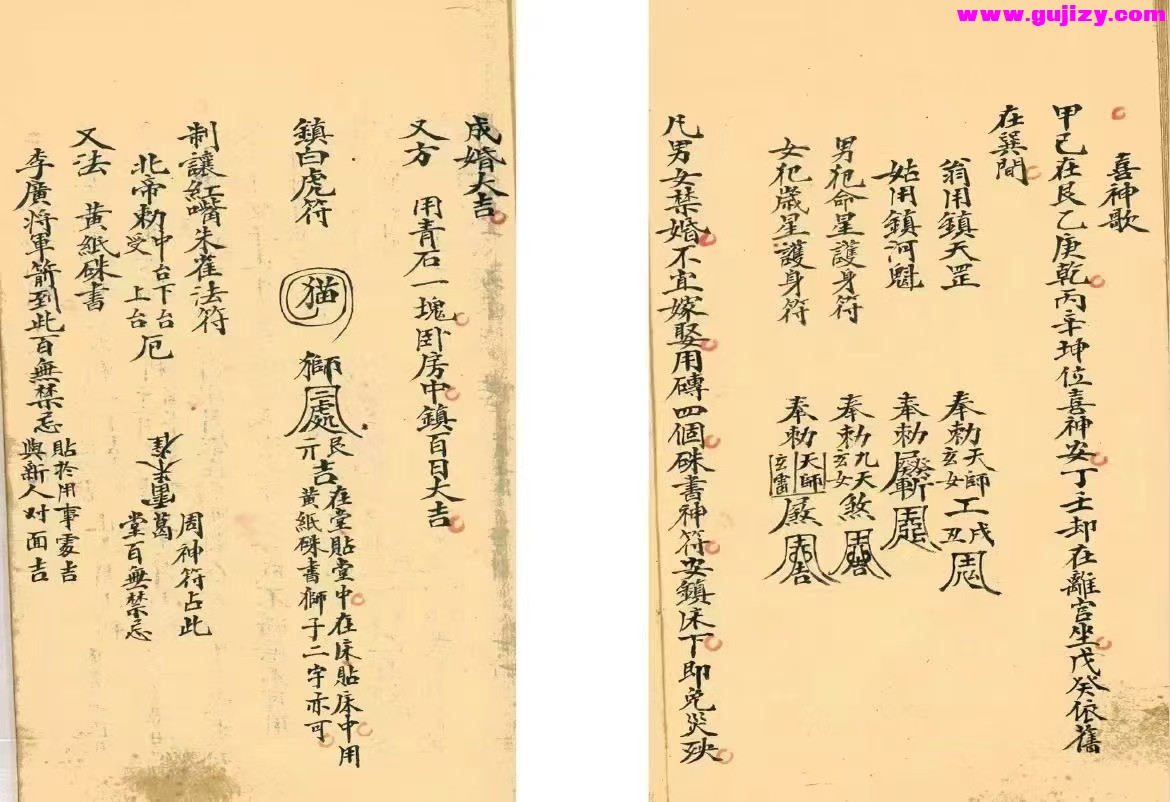 www.gujizy.com
喜神歌
甲己在艮乙庚乾丙辛坤位喜神安丁壬却在離宫坐戊癸依舊
在巽間
翁用鎮天罡 奉勅天師玄女
姑用鎮河魁 奉勅
男犯命星護身符 奉勅九天玄女煞
女犯歲星護身符 奉勅天師玄雷
凡男女禁婚不宜嫁娶用磚四個硃書神符安鎮床下即免災殃
成婚大吉
又方 用青石一塊卧房中鎮百日大吉
鎮白虎符 猫 獅 三處 吉 在堂貼堂中在床貼床中用
黄紙硃書獅子二字亦可
制讓紅嘴朱雀法符 周神符占此
北帝勅受中台下台上台 堂百無禁忌
又法 黄紙硃書
李廣将軍箭到此百無禁忌 貼於用事處吉
與新人对面吉